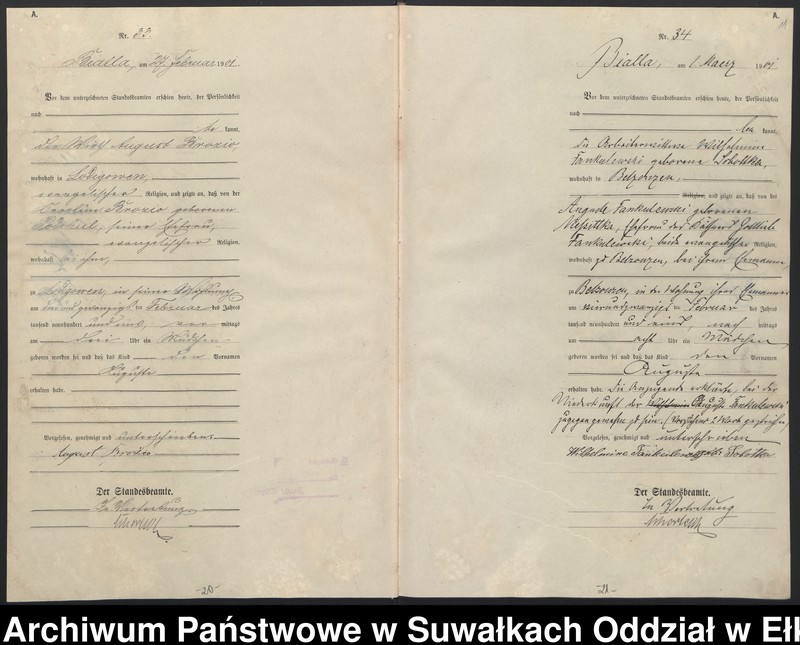 A.
Nr. 33.
Bialla, am 27 Februar 1901.
Vor dem unterzeichneten Standesbeamten erschien heute, der Persönlichkeit
nach
be kannt,
der Wirth August Brozio
wohnhaft in Lodigowen,
evangelischer Religion, und zeigte an, daß von der
Caroline Brozio geborenen
seiner Ehefrau,
evangelischer Religion,
wohnhaft bei ihm,
zu Lodigowen, in seiner Wohnung
am drei und zwanzigsten Februar des Jahres
tausend neunhundert und eins, vor mittags
um drei Uhr ein Mädchen
geboren worden sei und daß das Kind den Vornamen
Auguste
erhalten habe.
Vorgelesen, genehmigt und unterschrieben
August Brozio
Der Standesbeamte.
In Vertretung
-20-
A.
Nr. 34
Bialla, am 1 Maerz 1901
Vor dem unterzeichneten Standesbeamten erschien heute, der Persönlichkeit
nach
be kannt,
die Wilhelmine
Fankulewski geborene Sobottka,
wohnhaft in Belzonzen,
Religion, und zeigte an, daß von der
Auguste Fankulewski geborenen
Ehefrau des Gottlieb
Fankulewski, beide evangelischer Religion,
wohnhaft zu Belzonzen, bei ihrem Ehemanne,
zu Belzonzen, in der Wohnung ihres Ehemannes
am vierundzwanzigsten Februar des Jahres
tausend neunhundert und eins, nach mittags
um acht Uhr ein Mädchen
geboren worden sei und daß das Kind den Vornamen
Auguste
erhalten habe. Die Anzeigende erklärte, bei der
Niederkunft der Auguste Fankulewski
zugegen gewesen zu sein. (Vorstehend 2 Worte gestrichen)
Vorgelesen, genehmigt und unterschrieben
Wilhelmine Fankulewski Sobottka
Der Standesbeamte.
In Vertretung
-21-
Archiwum Państwowe w Suwałkach Oddział w Ełk